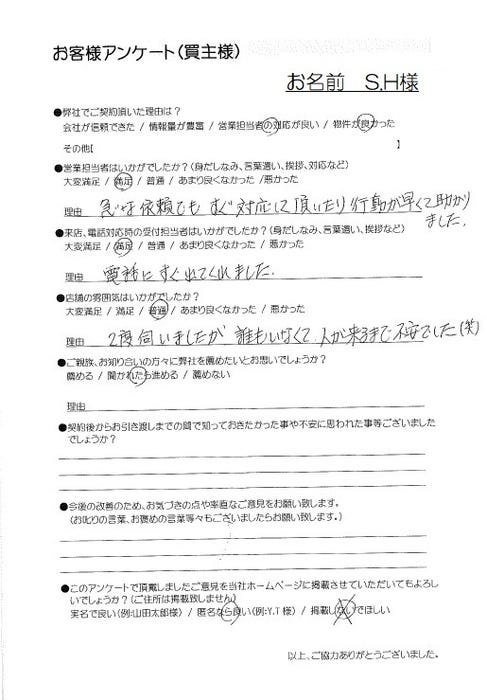 お客様アンケート(買主様)
お名前 S,H様
●弊社でご契約頂いた理由は?
会社が信頼できた / 情報量が豊富 / 営業担当者の対応が良い / 物件が良かった
その他【 】
●営業担当者はいかがでしたか?(身だしなみ、言葉遣い、挨拶、対応など)
大変満足 / 満足 / 普通 / あまり良くなかった / 悪かった
理由 急な依頼でも すぐ対応して頂いたり 行動が早くて助かり
ました。
●来店、電話対応時の受付担当者はいかがでしたか?(身だしなみ、言葉遣い、挨拶など)
大変満足 / 満足 / 普通 / あまり良くなかった / 悪かった
理由 電話にすぐれてくれました。
●店舗の雰囲気はいかがでしたか?
大変満足 / 満足 / 普通 / あまり良くなかった / 悪かった
理由 2度伺いましたが 誰もいなくて 人が来るまで不安でした(笑)
●ご親族、お知り合いの方々に弊社を薦めたいとお思いでしょうか?
薦める / 聞かれたら進める / 薦めない
理由
●契約後からお引き渡しまでの間で知っておきたかった事や不安に思われた事等ございました
でしょうか?
●今後の改善のため、お気づきの点や率直なご意見をお願い致します。
(お叱りの言葉、お褒めの言葉等々もございましたらお願い致します。)
●このアンケートで頂戴しましたご意見を当社ホームページに掲載させていただいてもよろし
いでしょうか?(ご住所は掲載致しません)
実名で良い(例:山田太郎様) / 匿名なら良い(例:Y.T様) / 掲載しないでほしい
以上、ご協力ありがとうございました。